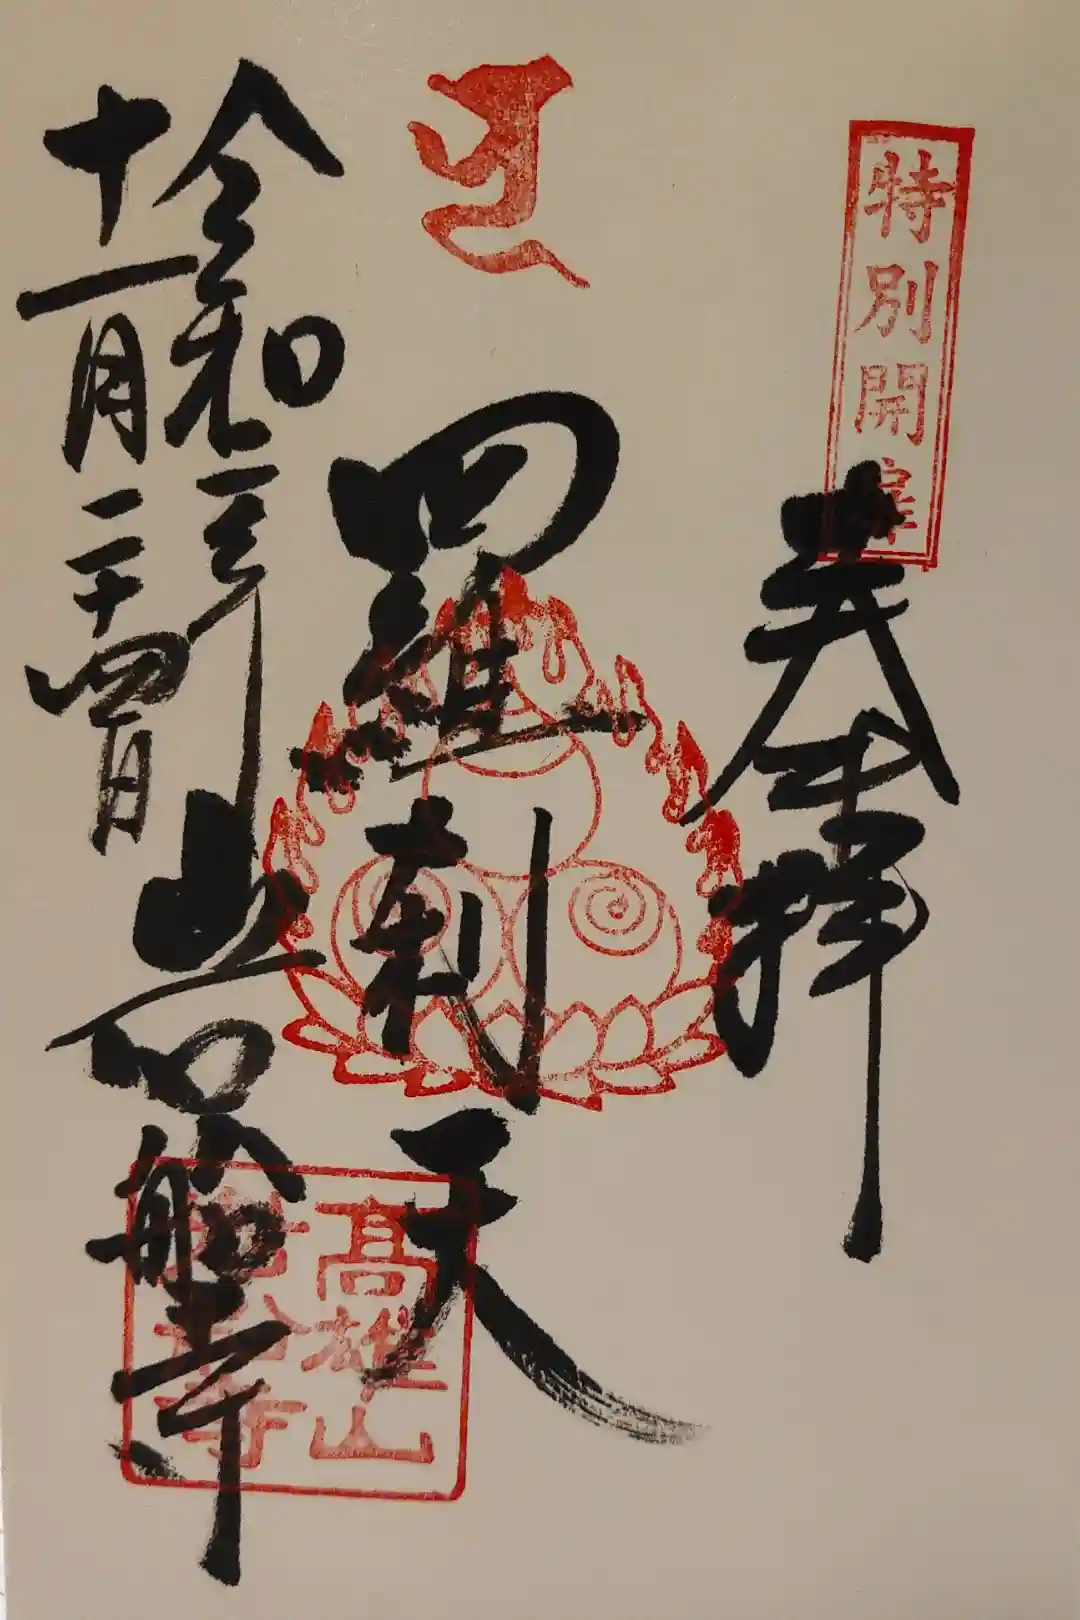 特別開扉
奉拝
羅刹天
令和三年
十一月二十四日
岩船寺
高雄山
岩船寺